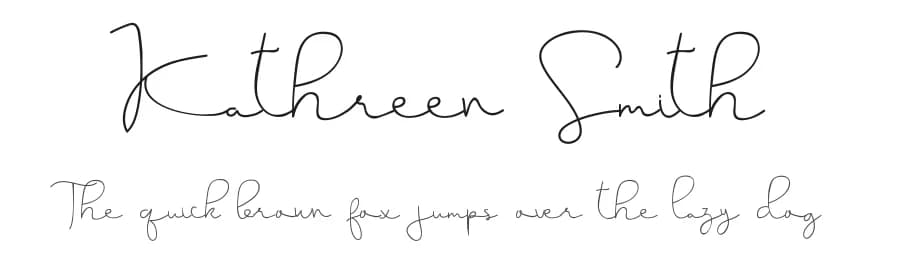 Kathreen Smith
The quick brown fox jumps over the lazy dog